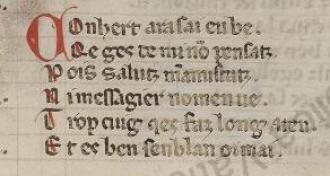 Conhert ara sai eu be.
Qe ges de mi nō pensatz.
Pois salutz māmistatz.
Ni messagier no men ue.
Trop cuig qes faz long aten.
Et es ben senblan oimai.